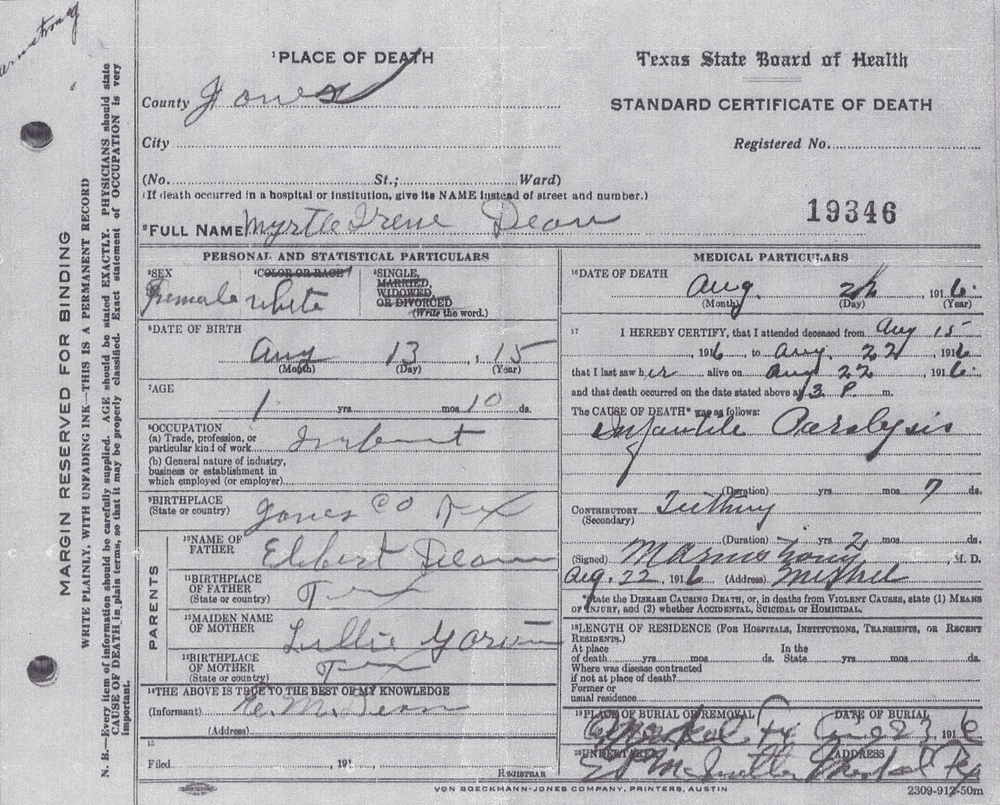 MARGIN RESERVED FOR BINDING
WRITE PLAINLY, WITH UNFADING INK—THIS IS A PERMANENT RECORD
N. B.—Every item of information should be carefully supplied. AGE should be stated EXACTLY. PHYSICIANS should state
CAUSE OF DEATH in plain terms, so that it may be properly classified. Exact statement of OCCUPATION is very
important.
1 PLACE OF DEATH
County Jones
City
(No. St.; Ward)
(If death occurred in a hospital or institution, give its NAME instead of street and number.)
Texas State Board of Health
STANDARD CERTIFICATE OF DEATH
Registered No.
19346
2 FULL NAME Myrtle Irene Dean
PERSONAL AND STATISTICAL PARTICULARS
3 SEX Female
4 COLOR OR RACE White
5 SINGLE,
MARRIED,
WIDOWED,
OR DIVORCED
(Write the word.)
6 DATE OF BIRTH
Aug 13, 1 15
(Month) (Day) (Year)
7 AGE
1 yrs mos 10 ds.
8 OCCUPATION
(a) Trade, profession, or
particular kind of work Infant
(b) General nature of industry,
business or establishment in
which employed (or employer)
9 BIRTHPLACE
(State or country) Jones Co Tex
PARENTS
10 NAME OF
FATHER Elbert Dean
11 BIRTHPLACE
OF FATHER
(State or country) Tex
12 MAIDEN NAME
OF MOTHER Lillie
13 BIRTHPLACE
OF MOTHER
(State or country) Tex
14 THE ABOVE IS TRUE TO THE BEST OF MY KNOWLEDGE
(Informant) E. M. Dean
(Address)
15
Filed , 191
REGISTRAR
MEDICAL PARTICULARS
16 DATE OF DEATH
Aug. 22, 1916.
(Month) (Day) (Year)
17 I HEREBY CERTIFY, that I attended deceased from Aug 15
, 1916 to Aug. 22, 1916
that I last saw her alive on Aug 22, 1916.
and that death occurred on the date stated above at 3 P. m.
The CAUSE OF DEATH* was as follows:
Infantile Paralysis
(Duration) yrs mos 7 ds.
CONTRIBUTORY Teething
(Secondary)
(Duration) yrs 2 mos ds.
(Signed) M Armstrong, M. D.
Aug. 22, 1916 (Address) Merkel
*State the DISEASE CAUSING DEATH, or, in deaths from VIOLENT CAUSES, state (1) MEANS
OF INJURY, and (2) whether ACCIDENTAL, SUICIDAL or HOMICIDAL.
18 LENGTH OF RESIDENCE (FOR HOSPITALS, INSTITUTIONS, TRANSIENTS, OR RECENT
RESIDENTS.)
At place In the
of death yrs mos ds. State yrs mos ds.
Where was disease contracted
if not at place of death?
Former or
usual residence
19 PLACE OF BURIAL OR REMOVAL DATE OF BURIAL
Merkel Tx Aug 23, 1916
20 UNDERTAKER ADDRESS
Merkel Tex
VON BOECKMANN-JONES COMPANY, PRINTERS, AUSTIN
2309-912-50m